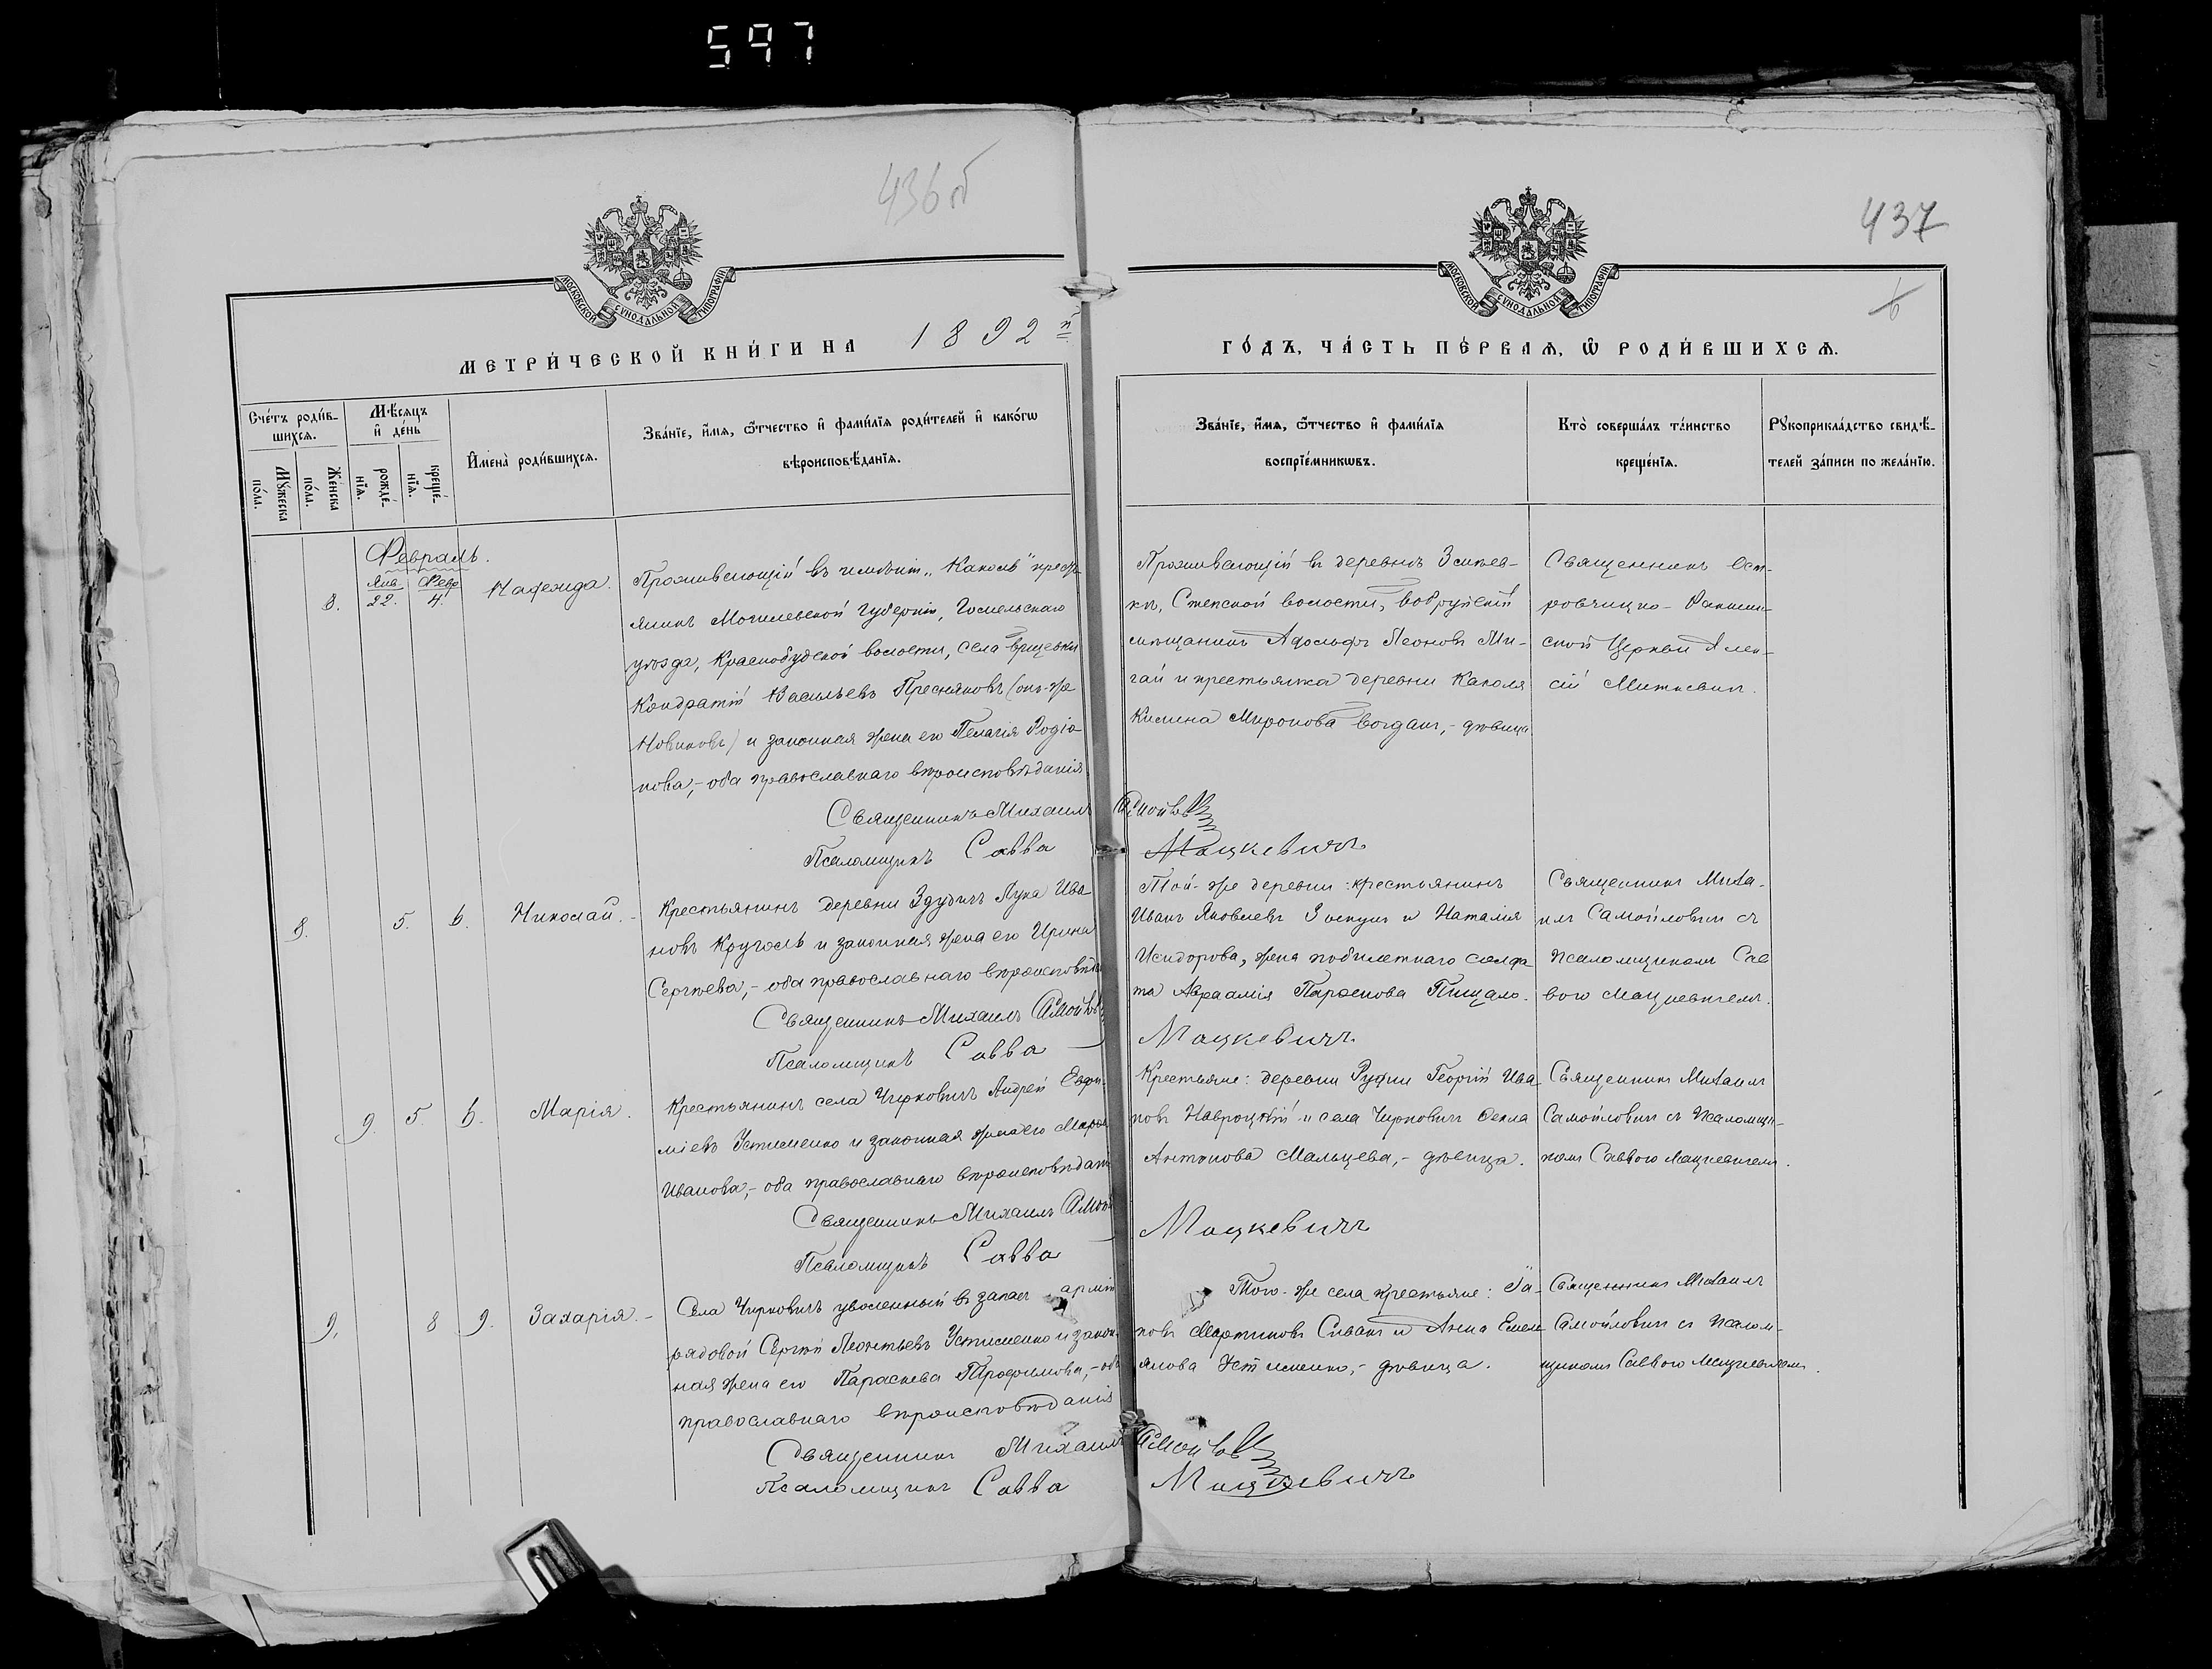 597
436об
437
6
МОСКОВСКОЙ СУНОДАЛЬНОЙ ТИПОГРАФІИ
МОСКОВСКОЙ СУНОДАЛЬНОЙ ТИПОГРАФІИ
МЕТРИ́ЧЕСКОЙ КНИ́ГИ НА 1892й
ГО́ДЪ, ЧА́СТЬ ПЕ́РВАѦ, Ѿ РОДИ́ВШИХСѦ.
Сче́тъ роди́в-
шихсѧ.
Мѣ́сѧцъ
и҆ де́нь
Мꙋ́жеска
по́ла.
Же́нска
по́ла.
рожде́-
нїѧ.
креще́-
нїѧ.
И҆мена̀ роди́вшихсѧ.
Зва́нїе, и҆́мѧ, ѻ҆́тчество и҆ фами́лїѧ роди́телей и҆ како́гѡ
вѣроисповѣ́данїѧ.
Зва́нїе, и҆́мѧ, ѻ҆́тчество и҆ фами́лїѧ
воспрїе́мникѡвъ.
Кто̀ соверша́лъ та́инство
креще́нїѧ.
Рꙋкоприкла́дство свидѣ́-
телей за́писи по жела́нїю.
Февраль.
Янв. Февр.
8. 22. 4. Надежда.
Проживающій въ имѣніи "Каколь" кресть
янинъ Могилевской губерніи, Гомельскаго
уѣзда, Краснобудской волости, села
Кондратій Васильевъ Пресняковъ (онъ-же
Новиковъ) и законная жена его Пелагія Родіо
нова,- оба православнаго вѣроисповѣданія.
Священникъ Михаилъ Самойлович
Псаломщикъ Савва Мацкевичъ
Проживающій въ деревнѣ
Степской волости, Бобруйскій
мѣщанинъ Адольфъ Леоновъ Ми-
гай и крестьянка деревни Каколя
Миронова Богданъ,- дѣвица
Священникъ Ост-
ровчицко-
ской Церкви Алек-
сій Миткевичъ.
8. 5. 6. Николай.-
Крестьянинъ деревни Здудичъ Лука Ива
новъ Круголь и законная жена его Ирина
Сергѣева,- оба православнаго вѣроисповѣд
Священникъ Михаилъ Самойлов
Псаломщикъ Савва Мацкевичъ.
Той-же деревни: крестьянинъ
Иванъ Яковлевъ и Наталія
Исидорова, жена побилетнаго солда
та Авраамія Парѳенова Пищало.
Священникъ Миха-
илъ Самойловичъ съ
псаломщикомъ Сав
вою Мацкевичемъ.
9. 5. 6. Марія.
Крестьянинъ села Чирковичъ Андрей Евфи-
міевъ Устименко и законная жена его Марѳа
Иванова,- оба православнаго вѣроисповѣдан
Священникъ Михаилъ Самой
Псаломщикъ Савва Мацкевичъ
Крестьяне: деревни Рудни Георгій Ива
новъ Навроцкій и села Чирковичъ Ѳекла
Антонова Мальцева,- дѣвица.
Священникъ Михаилъ
Самойловичъ съ псаломщи-
комъ Саввою Мацкевичемъ.
9. 8 9. Захарія.-
Села Чирковичъ уволенный въ запасъ арміи
рядовой Сергѣй Леонтьевъ Устименко и закон
ная жена его Параскева Трофимова,- оба
православнаго вѣроисповѣданія
Священникъ Михаилъ Самойлович
Псаломщикъ Савва Мацкевичъ
Того-же села крестьяне: Іа-
ковъ Мартиновъ Сивакъ и Анна Емель
янова Устименко,- дѣвица.
Священникъ Михаилъ
Самойловичъ съ псалом-
щикомъ Саввою Мацкевичемъ.